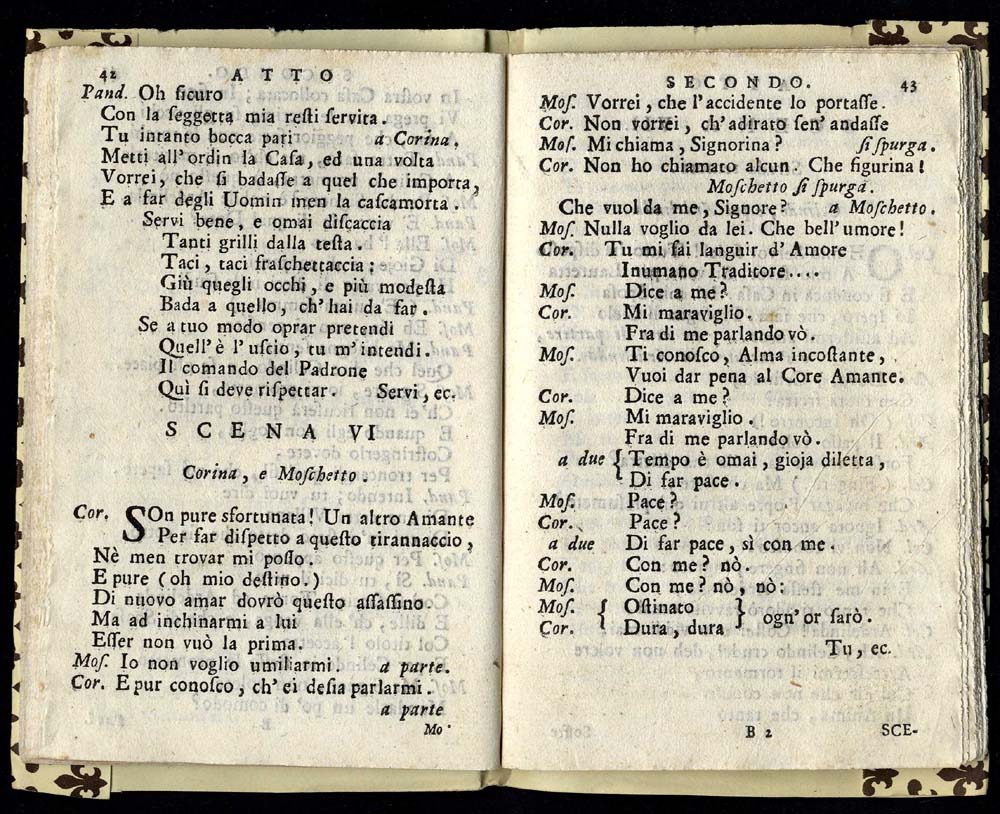 42 ATTO
Pand. Oh ſicuro
Con la ſeggetta mia reſti ſervita.
Tu intanto bocca pari a Corina.
Metti all'ordin la Caſa, ed una volta
Vorrei, che ſi badaſſe a quel che importa,
E a far degli Uomin men la caſcamorta.
Servi bene, e omai diſcaccia
Tanti grilli dalla teſta.
Taci, taci fraſchettaccia;
Giù quegli occhi, e più modeſta
Bada a quello, ch'hai da far.
Se a tuo modo oprar pretendi
Quell'è l'uſcio, tu m'intendi.
Il comando del Padrone
Quì ſi deve riſpettar. Servi, ec.
SCENA VI
Corina, e Moſchetto.
Cor. SOn pure sfortunata! Un altro Amante
Per far diſpetto a queſto tirannaccio,
Nè men trovar mi poſſo.
E pure (oh mio deſtino.)
Di nuovo amar dovrò queſto aſſaſſino.
Ma ad inchinarmi a lui
Eſſer non vuò la prima.
Moſ. Io non voglio umiliarmi. a parte.
Cor. E pur conoſco, ch'ei deſia parlarmi.
a parte
Mo
SECONDO. 43
Moſ. Vorrei, che l'accidente lo portaſſe.
Cor. Non vorrei, ch'adirato ſen'andaſſe
Moſ. Mi chiama, Signorina? ſi ſpurga.
Cor. Non ho chiamato alcun. Che figurina!
Moſchetto ſi ſpurga.
Che vuol da me, Signore? a Moſchetto.
Moſ. Nulla voglio da lei. Che bell'umore!
Cor. Tu mi fai languir d'Amore
Inumano Traditore....
Moſ. Dice a me?
Cor. Mi maraviglio.
Fra di me parlando vò.
Moſ. Ti conoſco, Alma incoſtante,
Vuoi dar pena al Core Amante.
Cor. Dice a me?
Moſ. Mi maraviglio.
Fra di me parlando vò.
a due { Tempo è omai, gioja diletta,
Di far pace.
Moſ. Pace?
Cor. Pace?
a due Di far pace, sì con me.
Cor. Con me? nò.
Moſ. Con me? nò, nò:
Moſ. { Oſtinato } ogn'or ſarò.
Cor. Dura, dura
Tu, ec.
B 2 SCE-